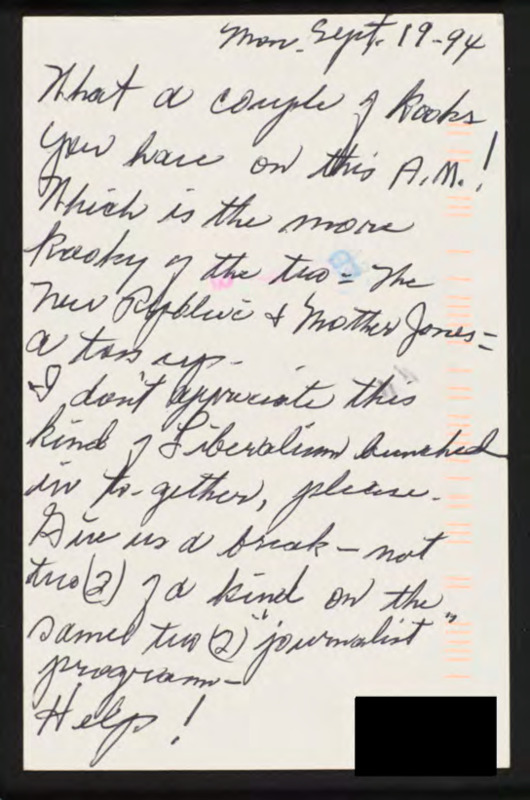 Mon. Sept. 19-94
What a couple of kooks
you have on this A.M.!
Which is the more
kooky of the two = The
New Republic & Mother Jones =
a toss up.
I don't appreciate this
kind of Liberalism bunched
in to-gether, please.
Give us a break - not
two (2) of a kind on the
same two (2) "journalist"
program -
Help!